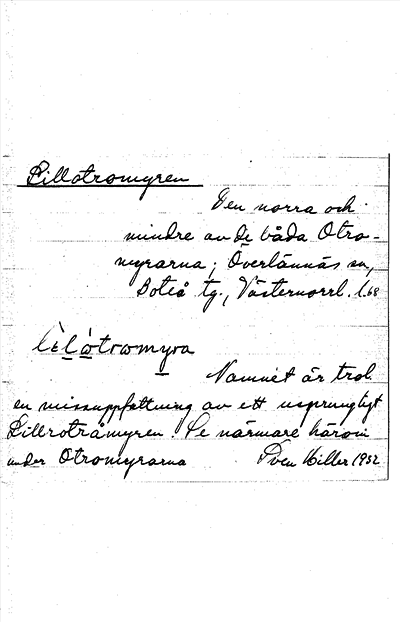 Lillotromyren
Den norra och
mindre av de båda Otro-
myrarna; Överlännäs sn,
Boteå tg., Västernorrl. l.
lèlótromyra
Namnet är trol.
en missuppfattning av ett ursprungligt
Lillrotråmyren. Se närmare härom
under Otromyrarna Sven Hiller 1932